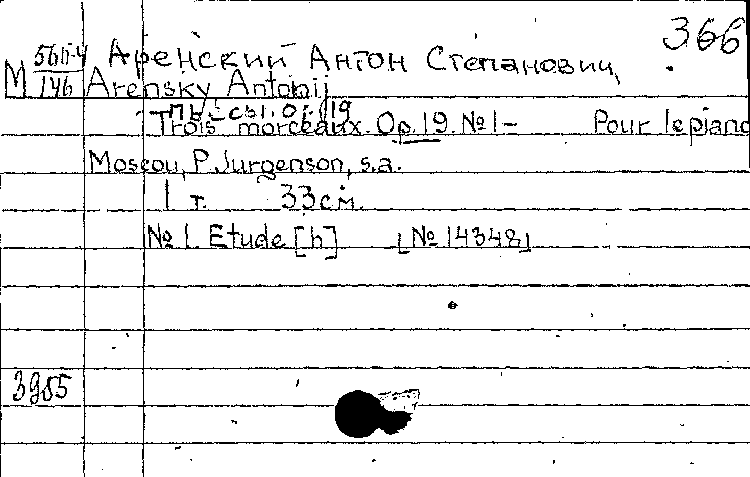 366
М 56п-4/146 Аренский Антон Степанович
Arensky Antonij
Пьесы. Op. 19
Trois morceaux. Op. 19. №1- Pour le piano
Moscou, P. Jurgenson, s.a.
1 т. 33 см.
№ 1. Etude [h] [№ 14348]
3985